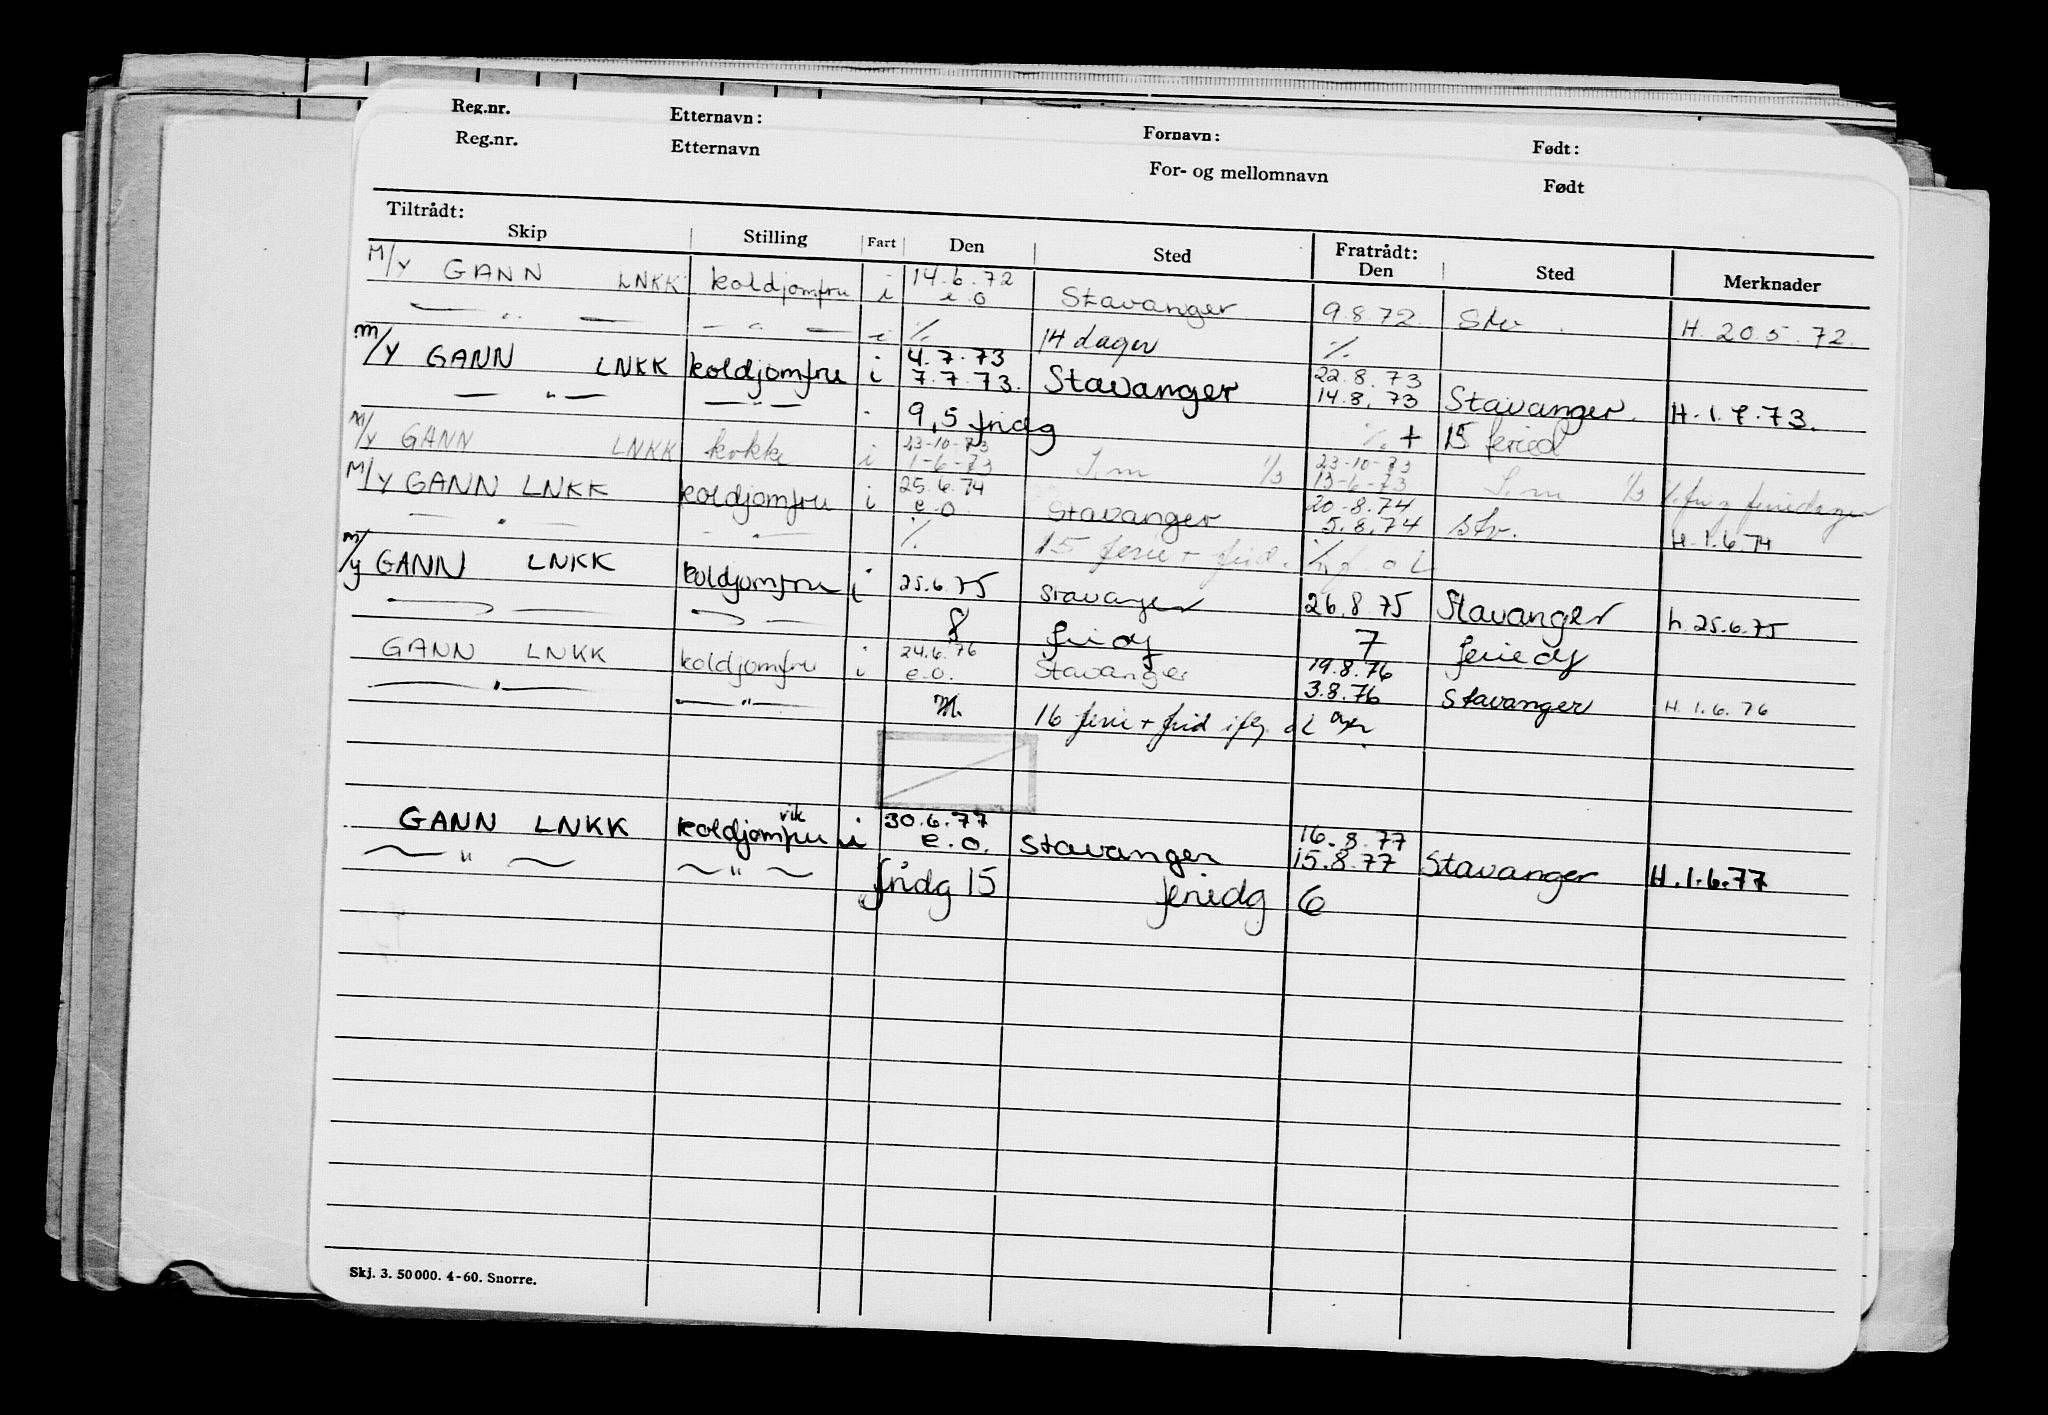 Reg.nr. Etternavn: Fornavn: Født:
Reg.nr. Etternavn For- og mellomnavn Født
Tiltrådt: Fratrådt:
Skip Stilling Fart Den Sted Den Sted Merknader
M/Y GANN LNKK koldjomfru i 14.6.72 Stavanger 9.8.72 Stv. H. 20.5.72.
— " — — " — i e.o
i % 14 dager %
M/Y GANN LNKK koldjomfru i 4.7.73 Stavanger 22.8.73 Stavanger. H. 1.7.73.
— " — — " — 7.7.73. 14.8.73
9,5 fridg % + 15 feried
M/Y GANN LNKK kokke i 23-10-73 S.m 1/3 23-10-73 S.m 1/3
1-6-73 13-6-73
M/Y GANN LNKK koldjomfru i 25.6.74 Stavanger 20.8.74 Stv. H. 1.6.74
— " — — " — e.o. 5.8.74
% 15 ferie + frid.
M/Y GANN LNKK koldjomfru i 25.6.75 Stavanger 26.8.75 Stavanger h. 25.6.75
8 fridg 7 feriedg
GANN LNKK koldjomfru i 24.6.76 Stavanger 19.8.76 Stavanger H. 1.6.76
— " — — " — i e.o. 3.8.76
16 ferie + frid
GANN LNKK koldjomfru vik i 30.6.77 Stavanger 16.8.77 Stavanger H. 1.6.77
— " — — " — e.o. 15.8.77
fridg 15 feriedg 6
Skj. 3. 50 000. 4-60. Snorre.